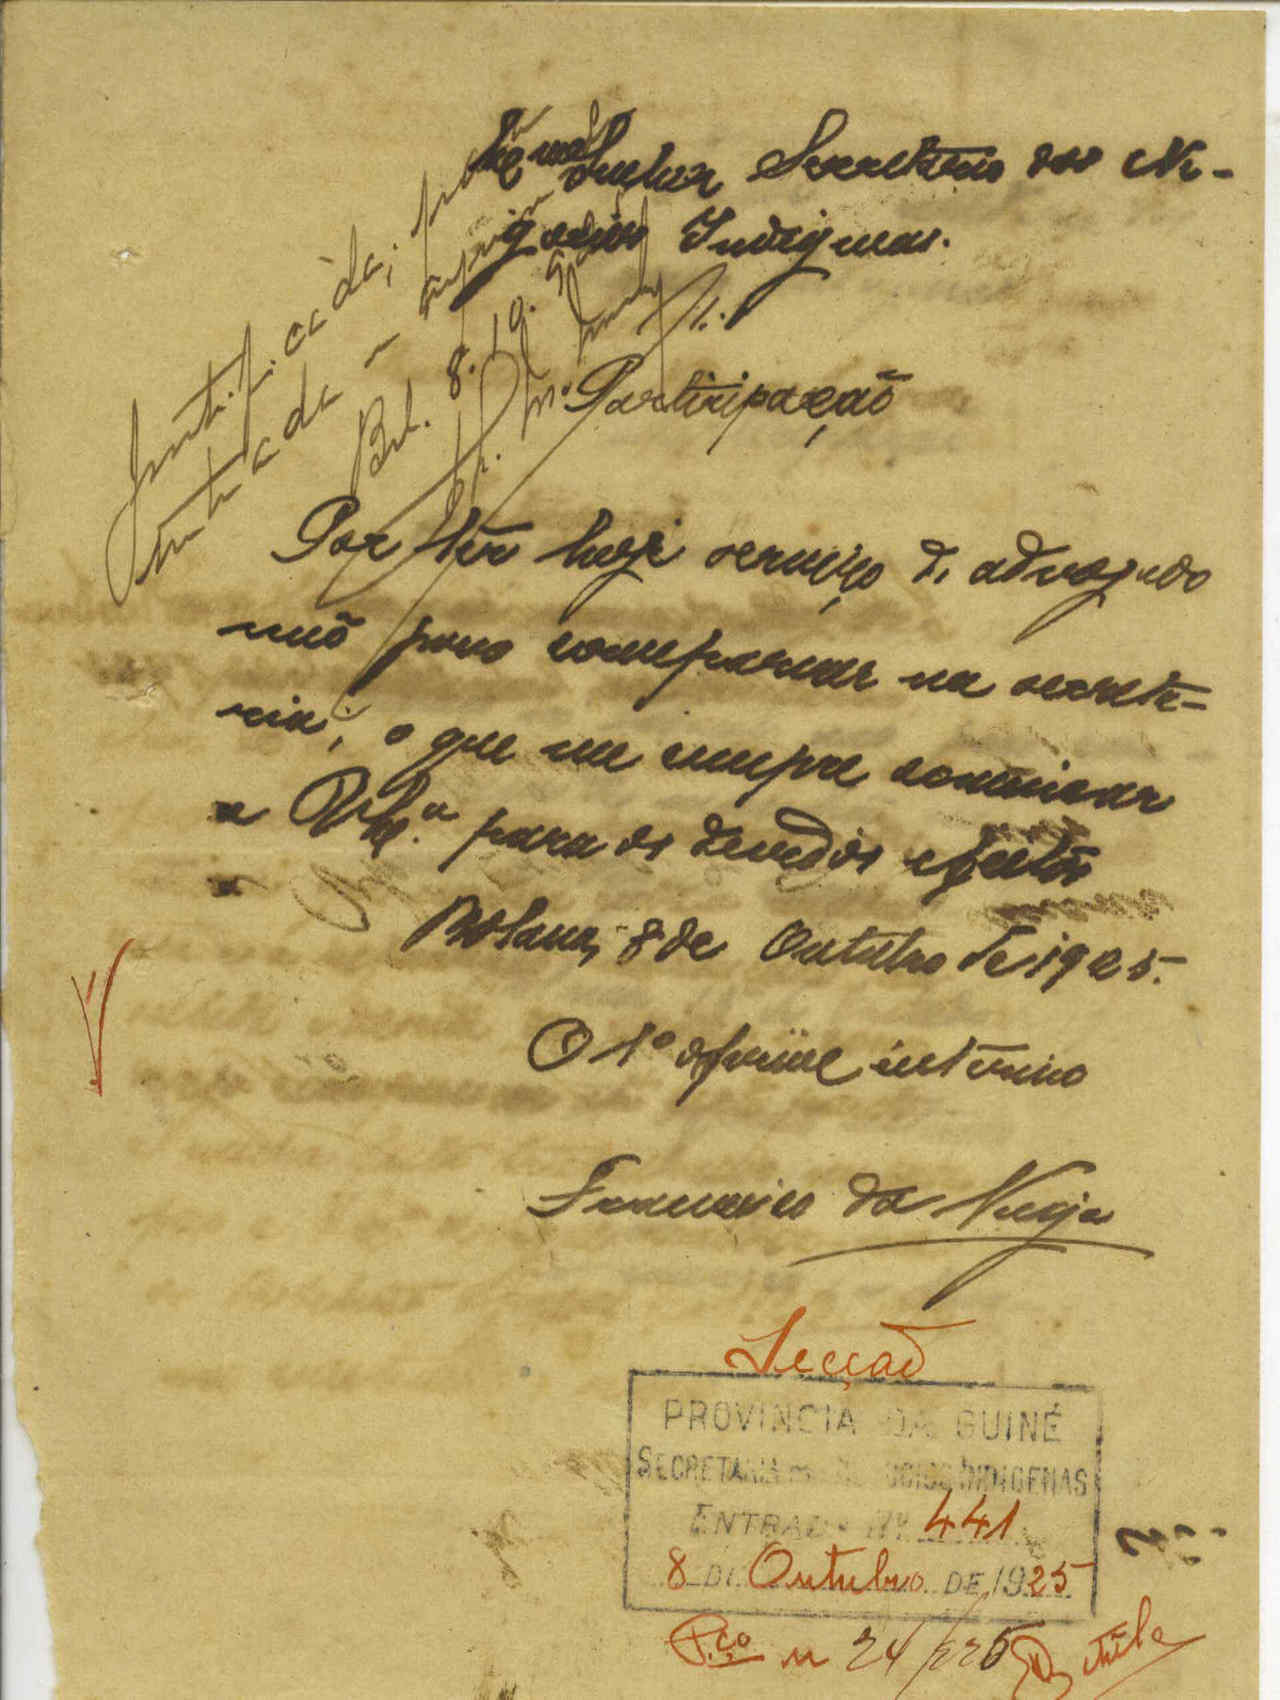 Senhor Secretário dos Ne-
gocios Indigenas.
Justificada;
entrada
Bol. 8.10.
Participação
Por ter hoje serviço de advogado
não posso comparecer na secreta-
ria, o que me cumpre comunicar
a V. Ex.ª para os devidos efeitos
Bolama, 8 de Outubro de 1925.
O 1º oficial interino
Francisco da Veiga
Secção
PROVINCIA DA GUINÉ
SECRETARIA DOS NEGOCIOS INDIGENAS
ENTRADA Nº 441
8 DE Outubro DE 1925
P.ço n 24/225